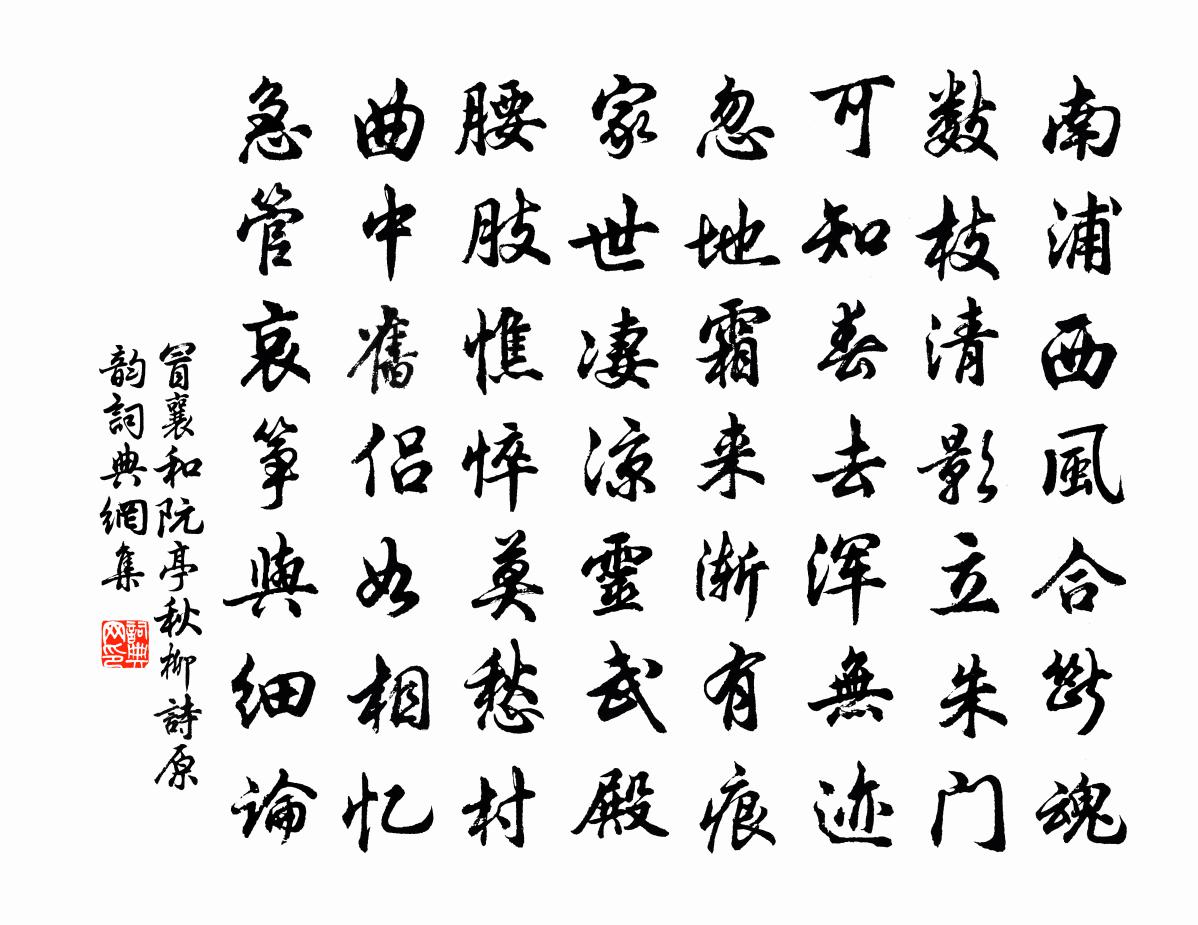 南浦西風合斷魂
數枝清影立朱门
可知春去浑無迹
忽地霜来渐有痕
家世凄凉靈武殿
腰肢憔悴莫愁村
曲中舊侣如相忆
急管哀筝與细論
冒襄和阮亭秋柳詩原
韵詞典網集
詞典
网印